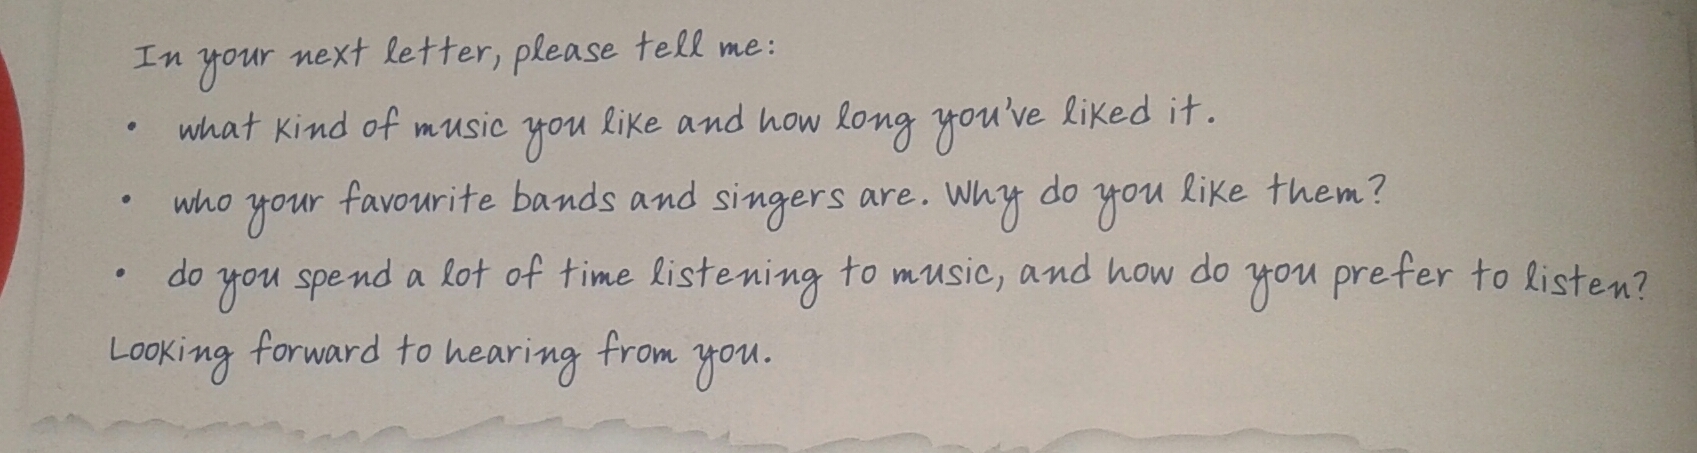 In your next letter, please tell me:
• what kind of music you like and how long you've liked it.
• who your favourite bands and singers are. Why do you like them?
• do you spend a lot of time listening to music, and how do you prefer to listen?
Looking forward to hearing from you.